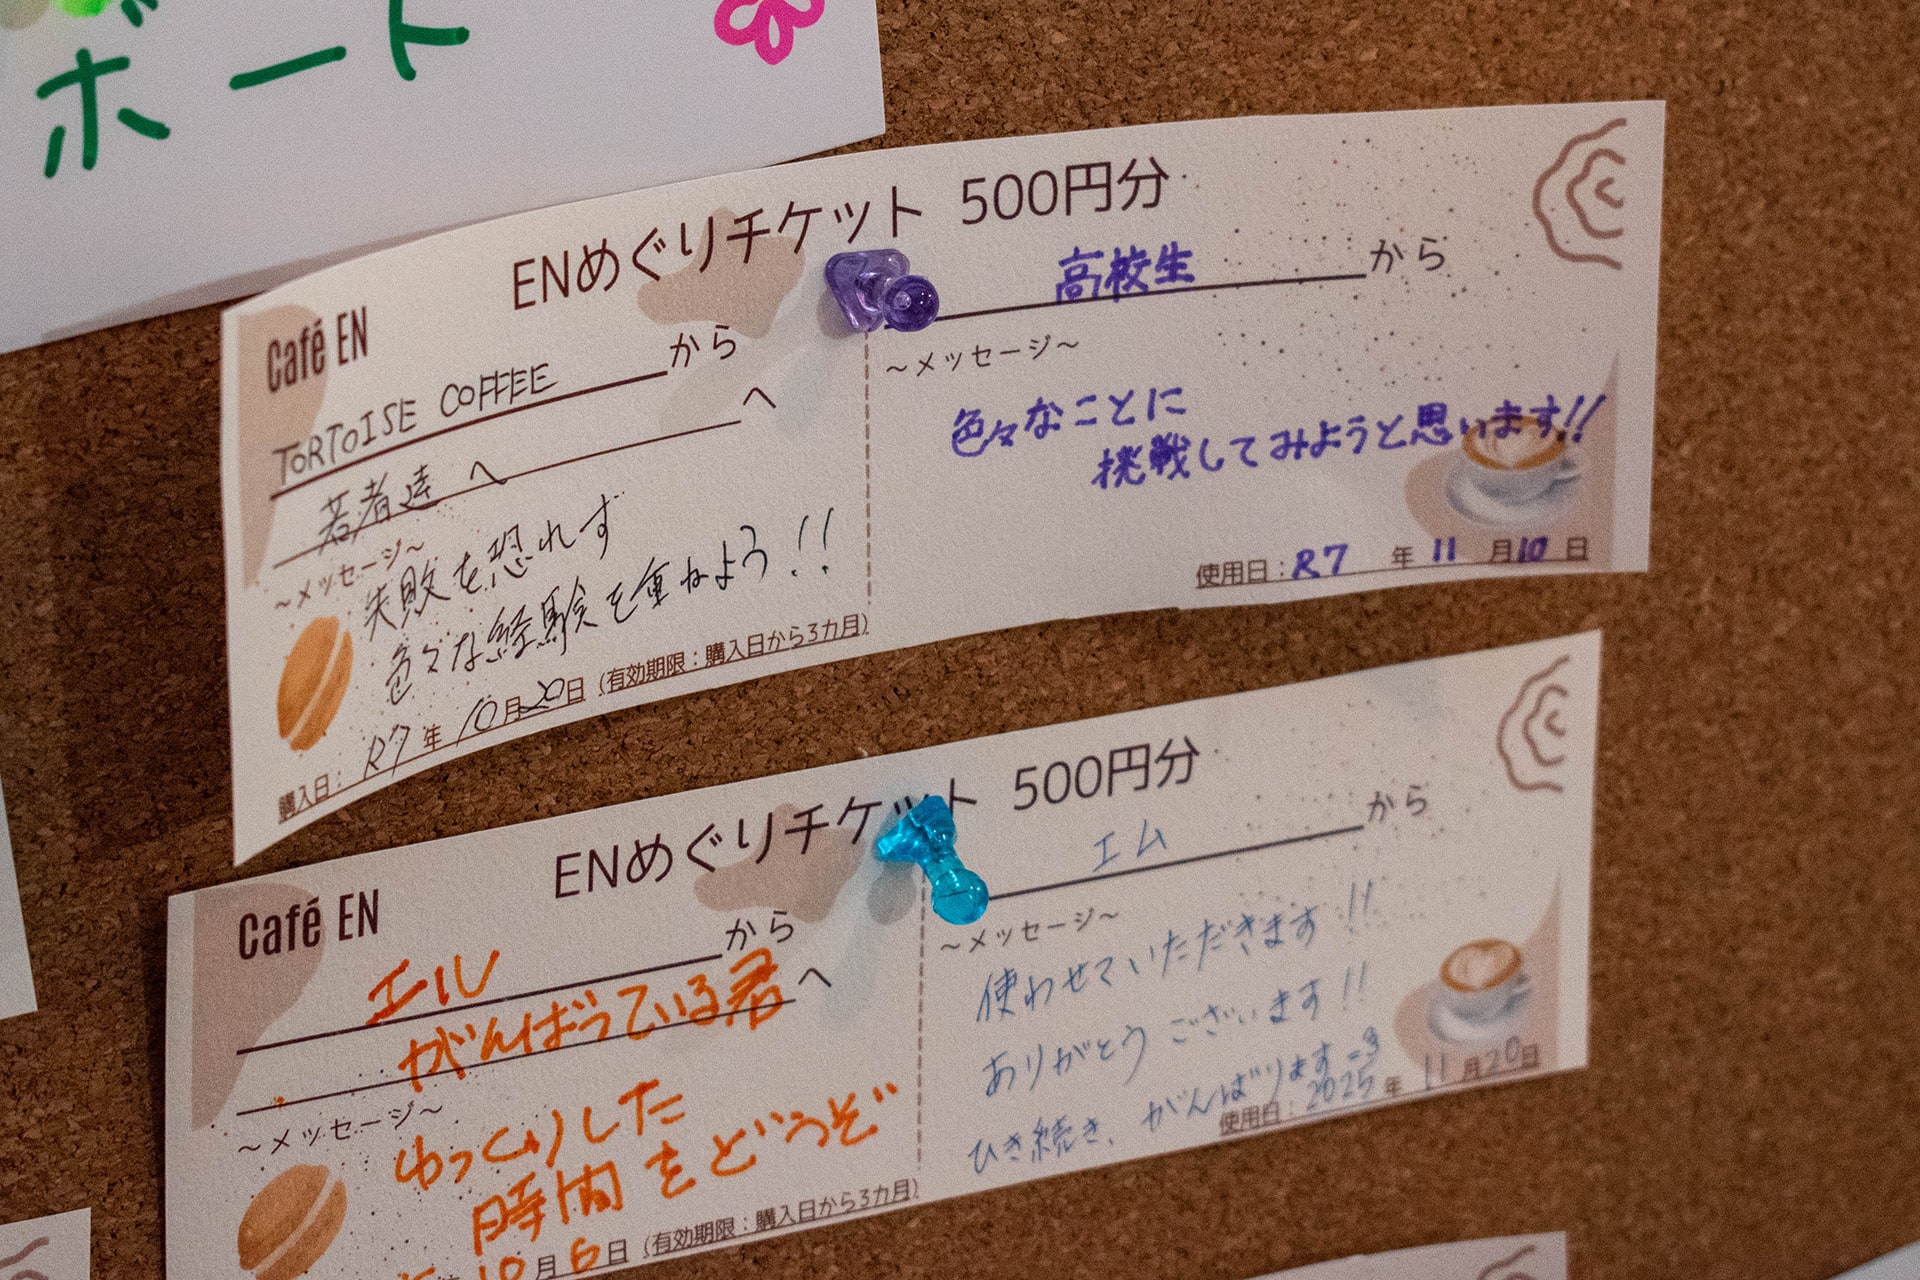 ボード
ENめぐりチケット 500円分
Café EN
TORTOISE COFFEE から
若者達へ へ
~メッセージ~
失敗を恐れず
色々な経験を重ねよう!!
購入日: R7年 10月20日 (有効期限:購入日から3カ月)
高校生 から
~メッセージ~
色々なことに
挑戦してみようと思います!!
使用日:R7 年 11 月10 日
ENめぐりチケット 500円分
Café EN
エル から
がんばっている君 へ
~メッセージ~
ゆっくりした
時間をどうぞ
10月6日 (有効期限:購入日から3カ月)
エム から
~メッセージ~
使わせていただきます!!
ありがとうございます!!
ひき続き、がんばります
使用日:2025年 11月20日